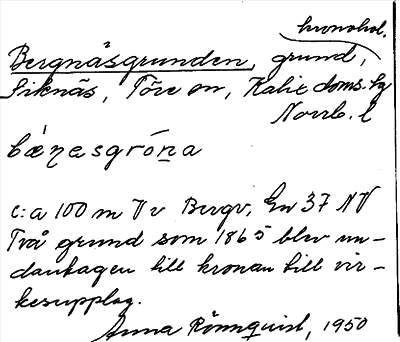 kronohol.
Bergnäsgrunden, grund,
Siknäs, Töre sn, Kalix doms. hg
Norrb. l
bǽɳasgróṉa
c:a 100 m V v Bergv, En 37 NV
Två grund som 1865 blev un-
dantagen till kronan till vir-
kesupplag.
Anna Rönnquist, 1950